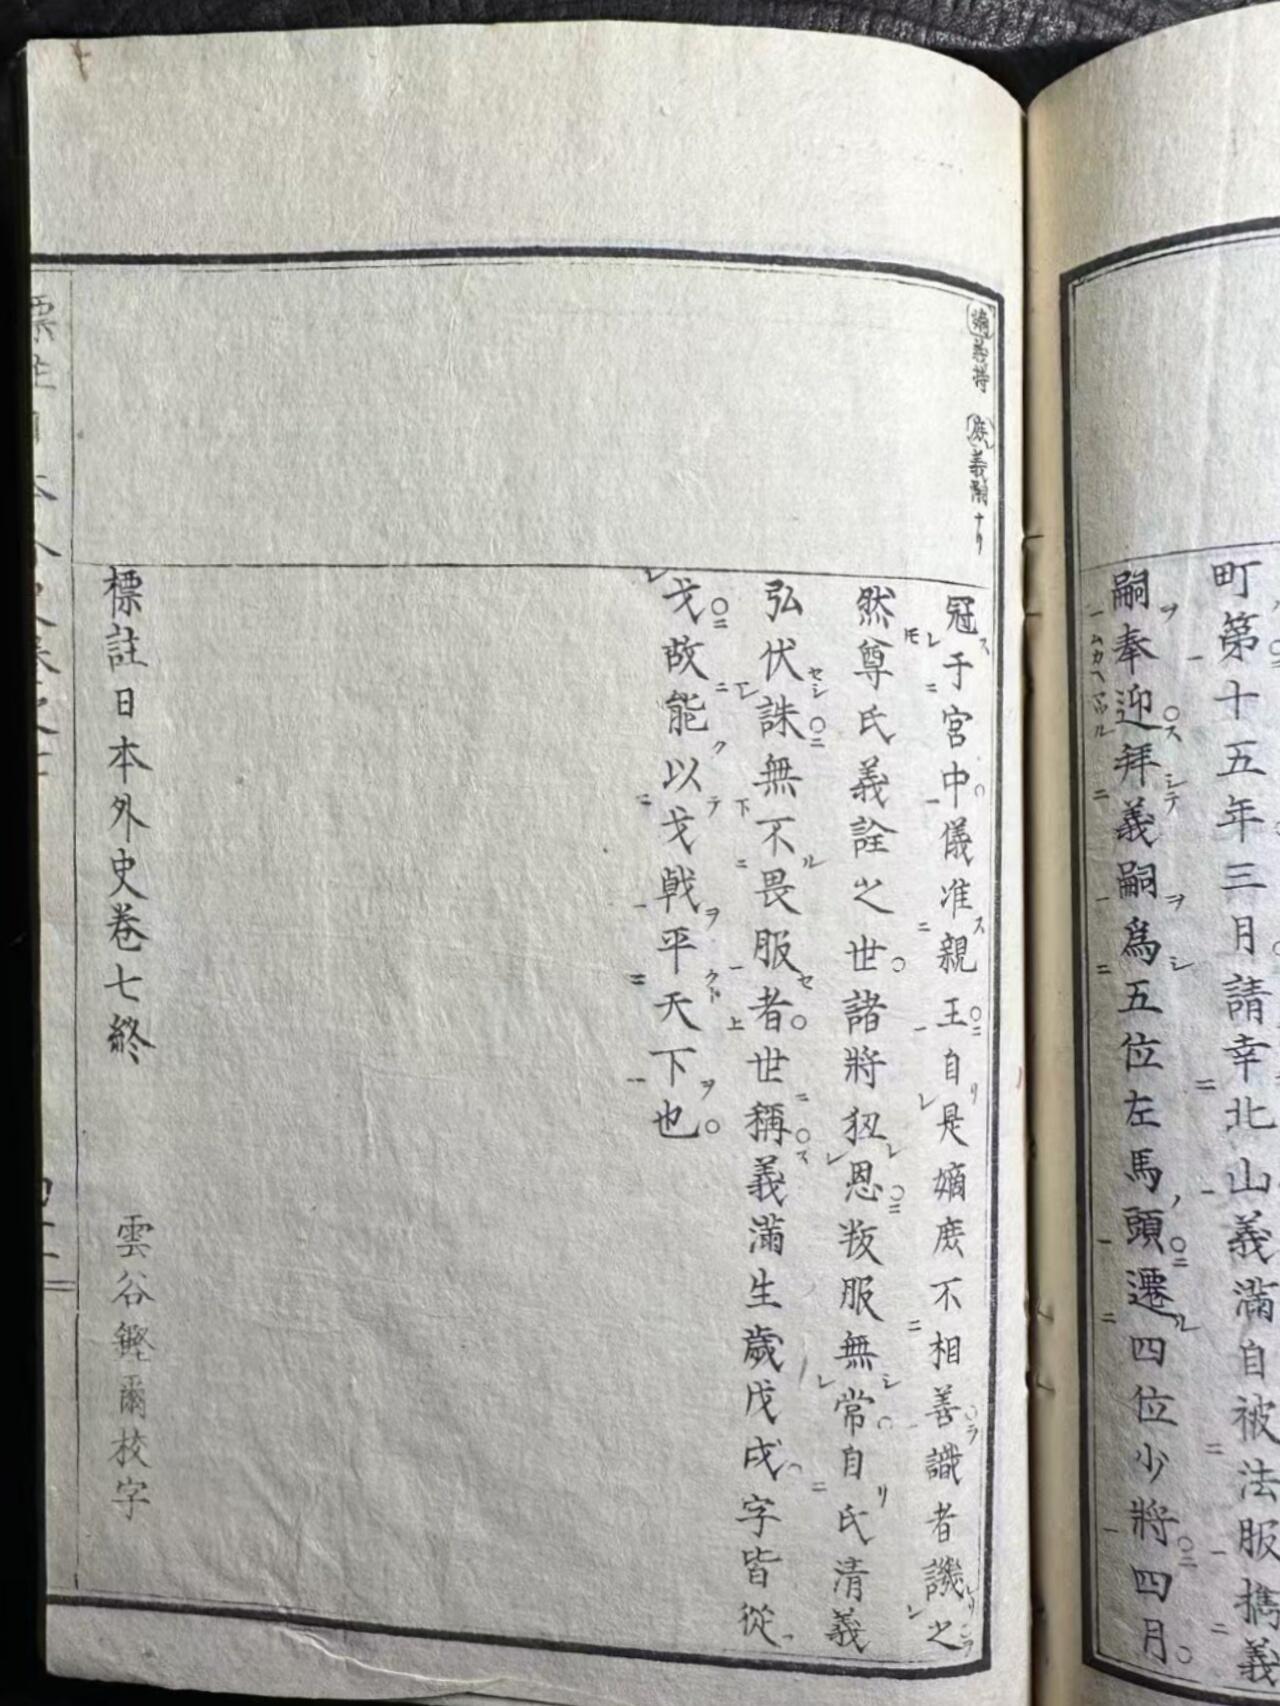 町第十五年三月請幸北山義滿自被法服攜義
嗣奉迎拜義嗣爲五位左馬頭遷四位少將四月
嫡義持 庶義嗣ナリ
冠于宮中儀准親王自是嫡庶不相善識者譏之
然尊氏義詮之世諸將狃恩叛服無常自氏清義
弘伏誅無不畏服者世稱義滿生歲戊戌字皆從
戈故能以戈戟平天下也
標註日本外史卷七終
雲谷鏗爾校字